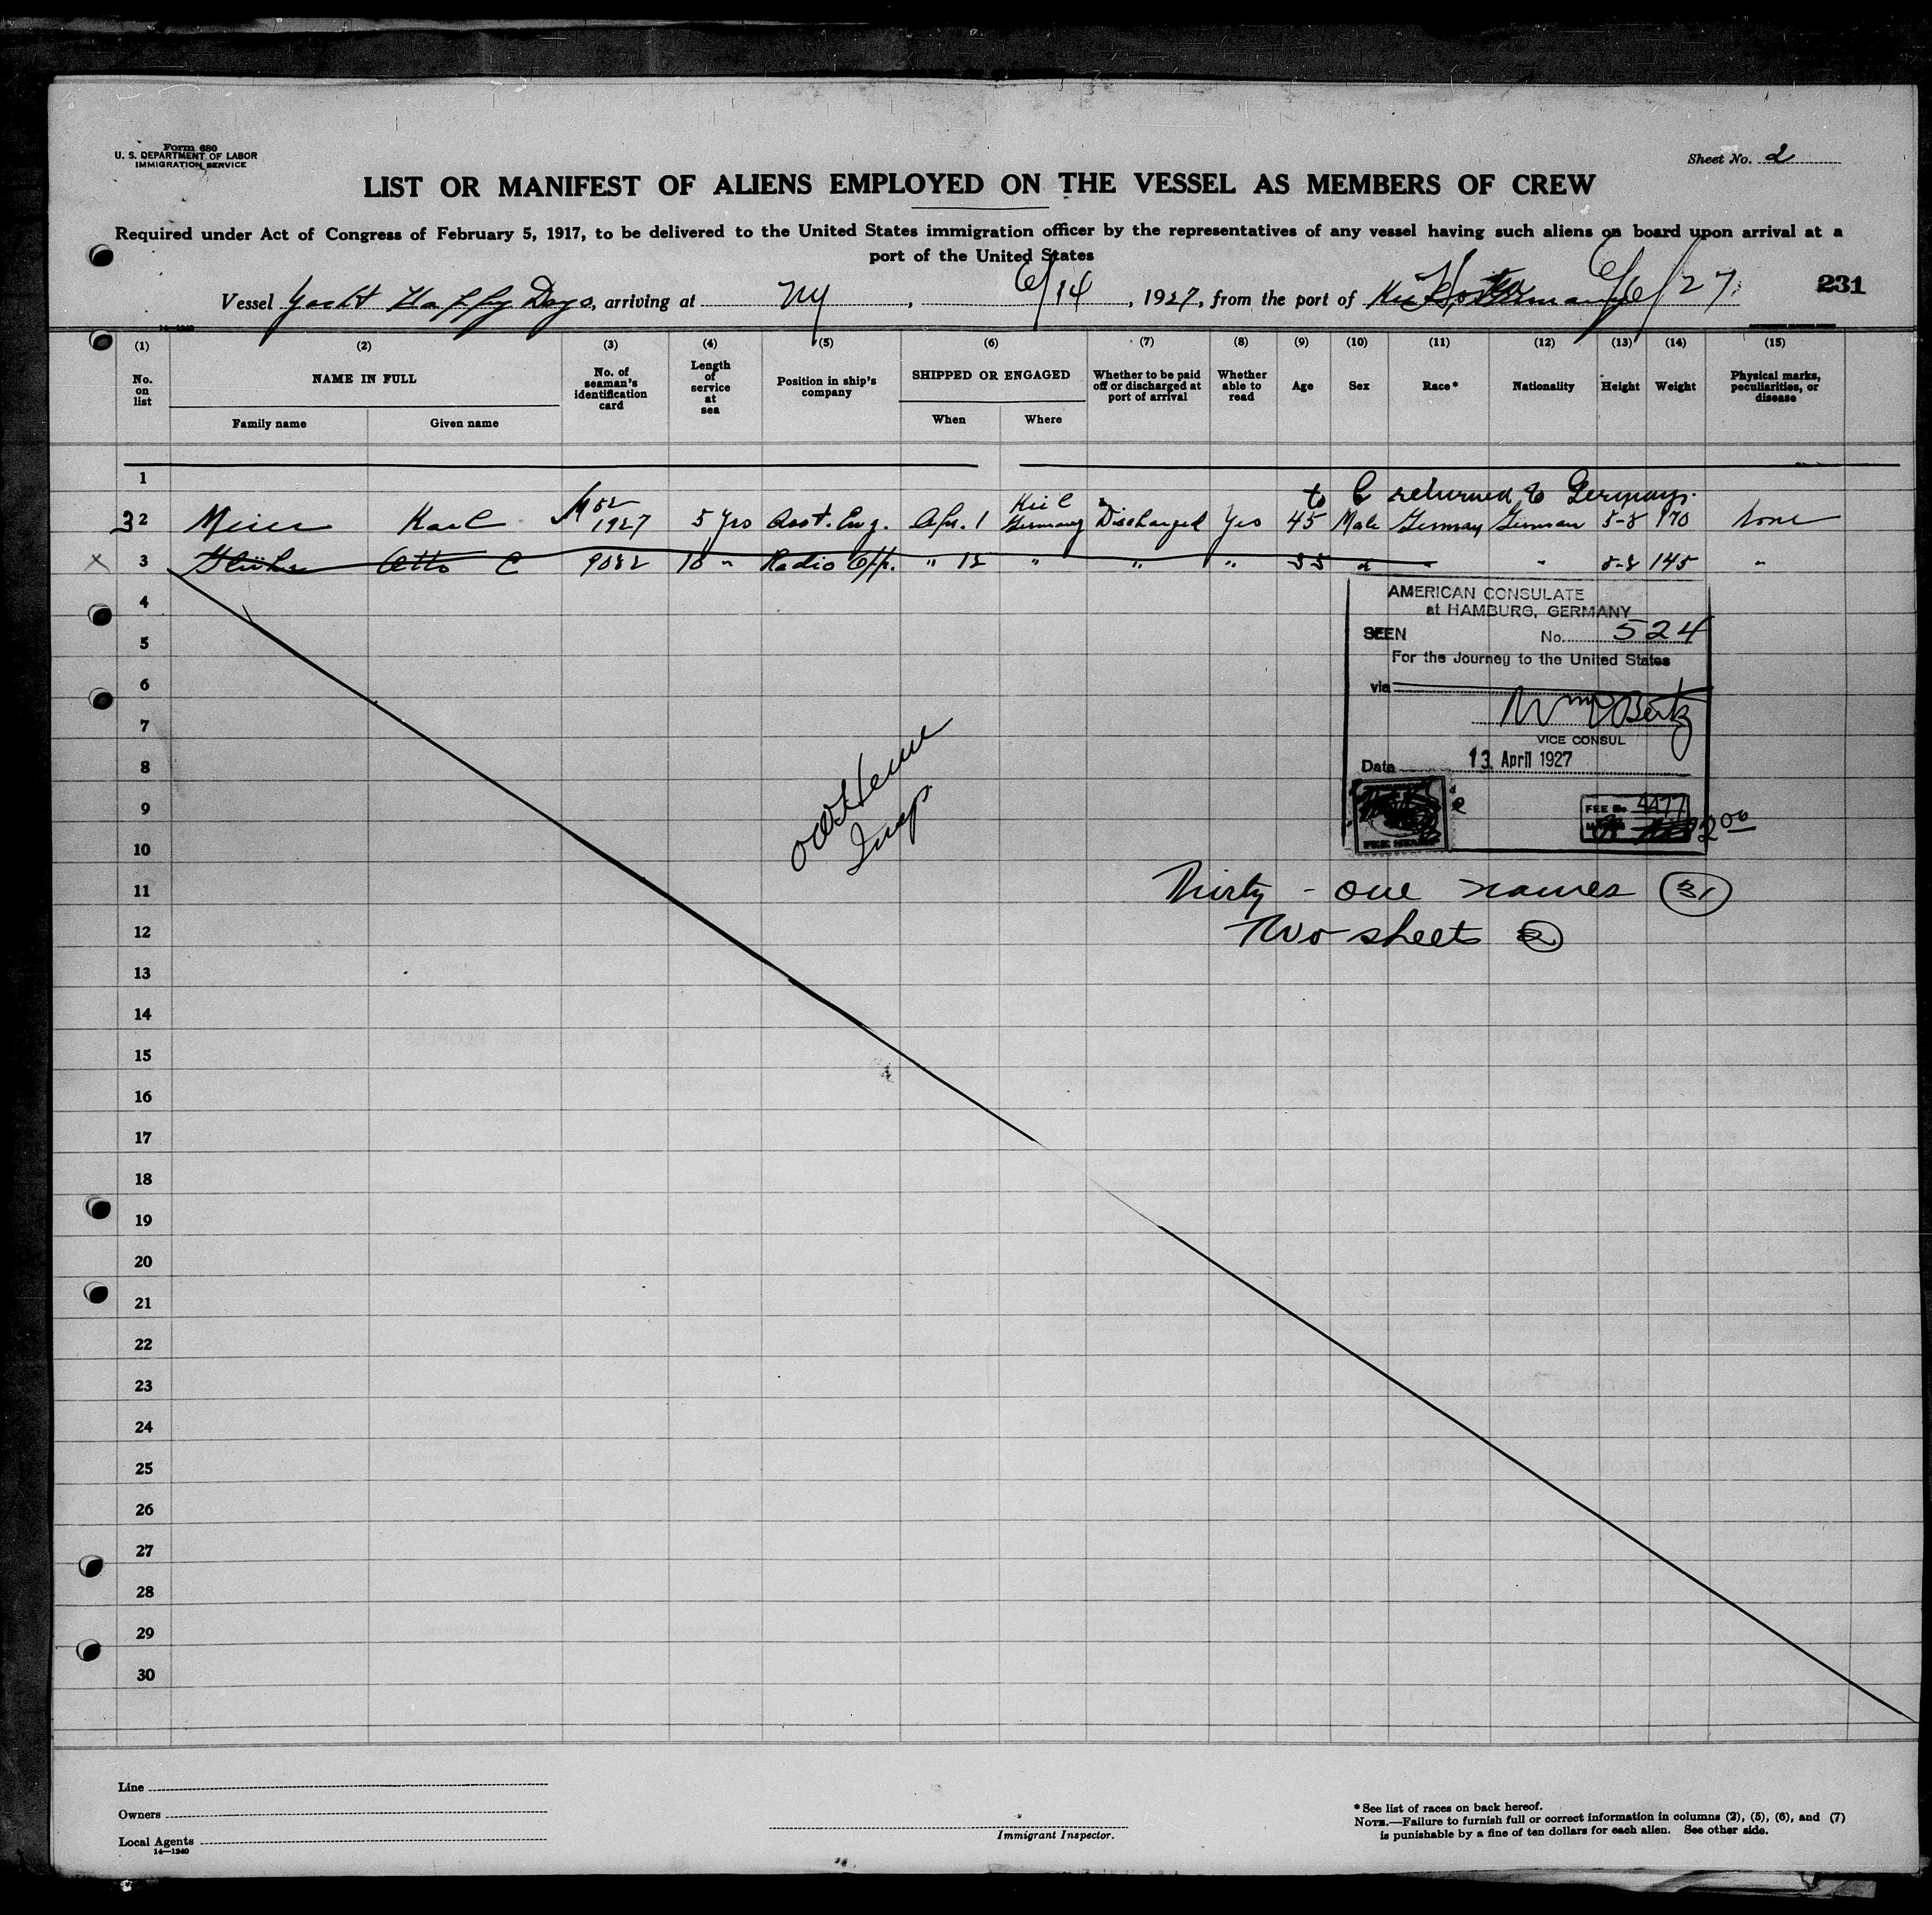 Form 680
U. S. DEPARTMENT OF LABOR
IMMIGRATION SERVICE
Sheet No. 2
LIST OR MANIFEST OF ALIENS EMPLOYED ON THE VESSEL AS MEMBERS OF CREW
Required under Act of Congress of February 5, 1917, to be delivered to the United States immigration officer by the representatives of any vessel having such aliens on board upon arrival at a
port of the United States
Vessel Yacht Happy Days, arriving at NY, 6/14, 1927, from the port of 6/6/27.
231
14—1240
(1) (2) (3) (4) (5) (6) (7) (8) (9) (10) (11) (12) (13) (14) (15)
No. on list NAME IN FULL No. of seaman's identification card Length of service at sea Position in ship's company SHIPPED OR ENGAGED Whether to be paid off or discharged at port of arrival Whether able to read Age Sex Race* Nationality Height Weight Physical marks, peculiarities, or disease
Family name Given name When Where
1
to be returned to Germany.
32 Meier Karl 1927 5 Yrs Asst. Eng. Apr. 1 Kiel Germany Discharged Yes 45 Male German German 5-8 170 None
x 3 Otto C 9082 10 " Radio Opp. " 12 " " " 35 " " " 5-8 145 "
AMERICAN CONSULATE
at HAMBURG, GERMANY
SEEN No. 524
For the Journey to the United States
via
VICE CONSUL
Date 13 April 1927
FEE No 4477
2 00
FEE STAMP
4
5
6
7
8
9
10
Insp.
11
Thirty-one names 31
12
Two sheets 2
13
14
15
16
17
18
19
20
21
22
23
24
25
26
27
28
29
30
Line
Owners
Local Agents
14—1240
Immigrant Inspector.
* See list of races on back hereof.
NOTE.—Failure to furnish full or correct information in columns (2), (5), (6), and (7)
is punishable by a fine of ten dollars for each alien. See other side.